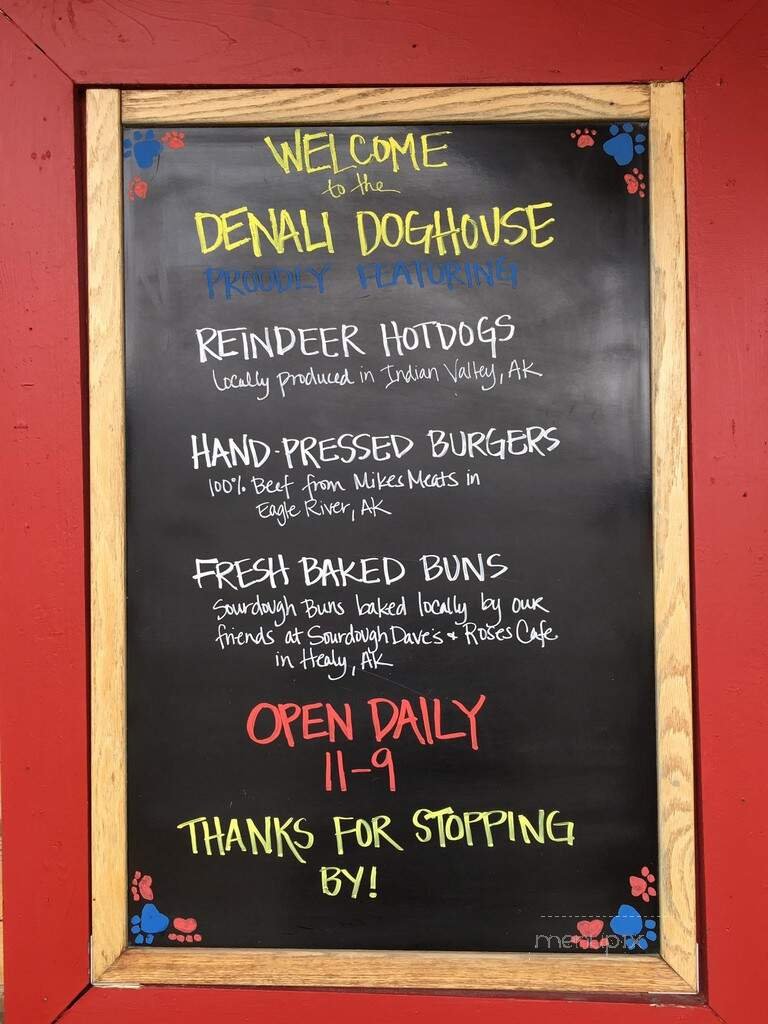 WELCOME
to the
DENALI DOGHOUSE
PROUDLY FEATURING
REINDEER HOTDOGS
Locally produced in Indian Valley, AK
HAND-PRESSED BURGERS
100% Beef from Mikes Meats in
Eagle River, AK
FRESH BAKED BUNS
Sourdough Buns baked locally by our
friends at Sourdough Dave's + Roses Cafe
in Healy, AK
OPEN DAILY
11-9
THANKS FOR STOPPING
BY!
menupix